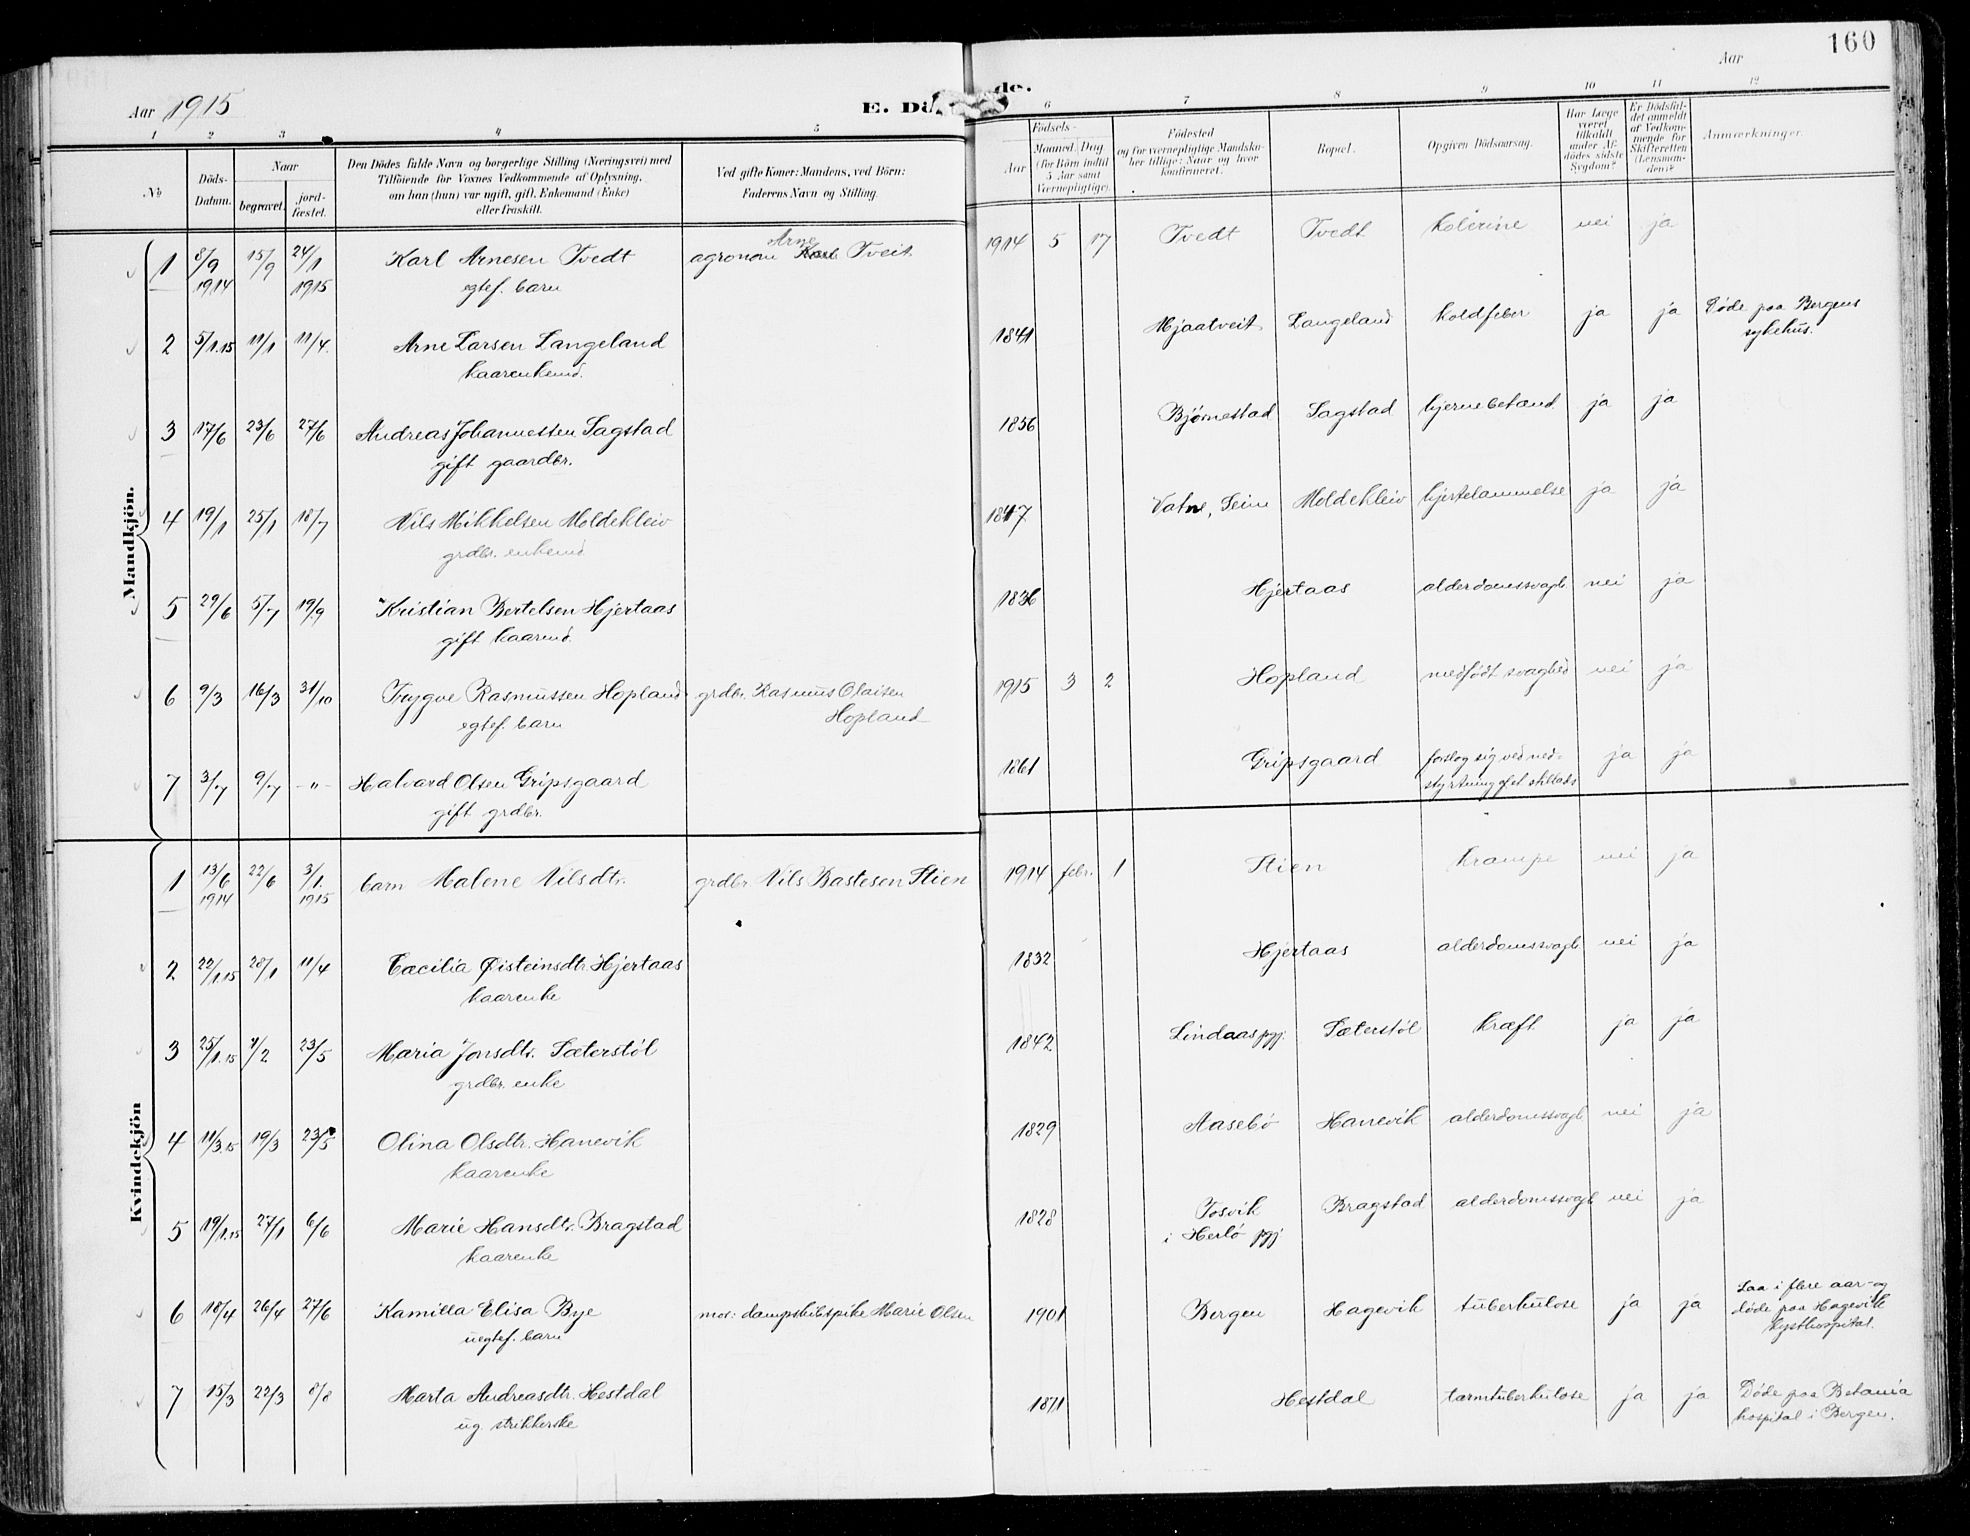 160
Aar 1915
E. Dö de.
Aar
1 2 3 4 5 6 7 8 9 10 11 12
No
Döds-Datum.
Naar
begravet.
jord-fæstet.
Den Dödes fulde Navn og borgerlige Stilling (Næringsvei) med
Tilföiende for Voxnes Vedkommende af Oplysning,
om han (hun) var ugift, gift, Enkemand (Enke)
eller fraskilt.
Ved gifte Koner: Mandens, ved Börn:
Faderens Navn og Stilling.
Födsels-
Aar
Maaned. Dag
(for Börn indtil
5 Aar samt
Værnepligtige).
Födested
og for værnepligtige Mandska-
ber tillige: Naar og hvor
konfirmeret.
Bopæl.
Opgiven Dödsaarsag.
Har Læge
været
tilkaldt
under Af-
dödes sidste
Sygdom?
Er Dödsfal-
det anmeldt
af Vedkom-
mende for
Skifteretten
(Lensman-
den)?
Anmærkninger.
Mandkjön.
1 8/9 1914 15/9 24/1 1915 Karl Arnesen Tvedt agronom Karl Arne Tveit 1914 5 17 Tvedt Tvedt kolerine nei ja
egtef. barn
2 5/1.15 11/1 11/4 Arne Larsen Langeland 1841 Mjaatveit Langeland koldfeber ja ja Døde paa Bergens
kaarenkemd. sykehus.
3 17/6 23/6 27/6 Andreas Johannessen Sagstad 1836 Bjørnestad Sagstad hjernebetænd. ja ja
gift gaardbr.
4 19/1 25/1 18/7 Nils Mikkelsen Moldekleiv 1847 Vatne, Seim Moldekleiv hjertelammelse ja ja
grdbr. enkemd
5 29/6 5/7 19/9 Kristian Bertelsen Hjertaas 1836 Hjertaas alderdomssvagh. nei ja
gift kaarmd.
6 9/3 16/3 31/10 Trygve Rasmussen Hopland grdbr. Rasmus Olaisen 1915 3 2 Hopland medfødt svaghed nei ja
egtef. barn Hopland
7 3/7 9/7 -"- Halvard Olsen Gripsgaard 1861 Gripsgaard forslog sig ved ned- ja ja
gift grdbr. styrtning af et stillads
Kvindekjön
1 13/6 1914 22/6 3/1. 1915 barn Malene Nilsdtr. grdbr Nils Bastesen Stien 1914 febr. 1 Stien krampe nei ja
2 22/1.15 28/1 11/4 Cacilia Øisteinsdtr. Hjertaas 1832 Hjertaas alderdomssvagh nei ja
kaarenke
3 25/1.15 4/2 23/5 Maria Jonsdtr. Sæterstøl 1842 Lindaas pgj. Sæterstøl kræft ja ja
grdbr. enke
4 11/3.15 19/3 23/5 Olina Olsdtr. Hanevik 1829 Aasebø Hanevik alderdomssvagh nei ja
kaarenke
5 19/1.15 27/1 6/6 Marie Hansdtr. Bragstad 1828 Tosvik Bragstad alderdomssvagh nei ja
kaarenke i Herlø pgj
6 18/4 26/4 27/6 Kamilla Elisa Bye mor: dampskibspike Marie Olsen 1901 Bergen Hagevik tuberkulose ja ja Laa i flere aar og
uegtef. barn døde paa Hagevik
kysthospital.
7 15/3 22/3 8/8 Marta Andreasdtr. Hestdal 1871 Hestdal tarmtuberkulose ja ja Døde paa Betania
ug. strikkerske hospital i Bergen.